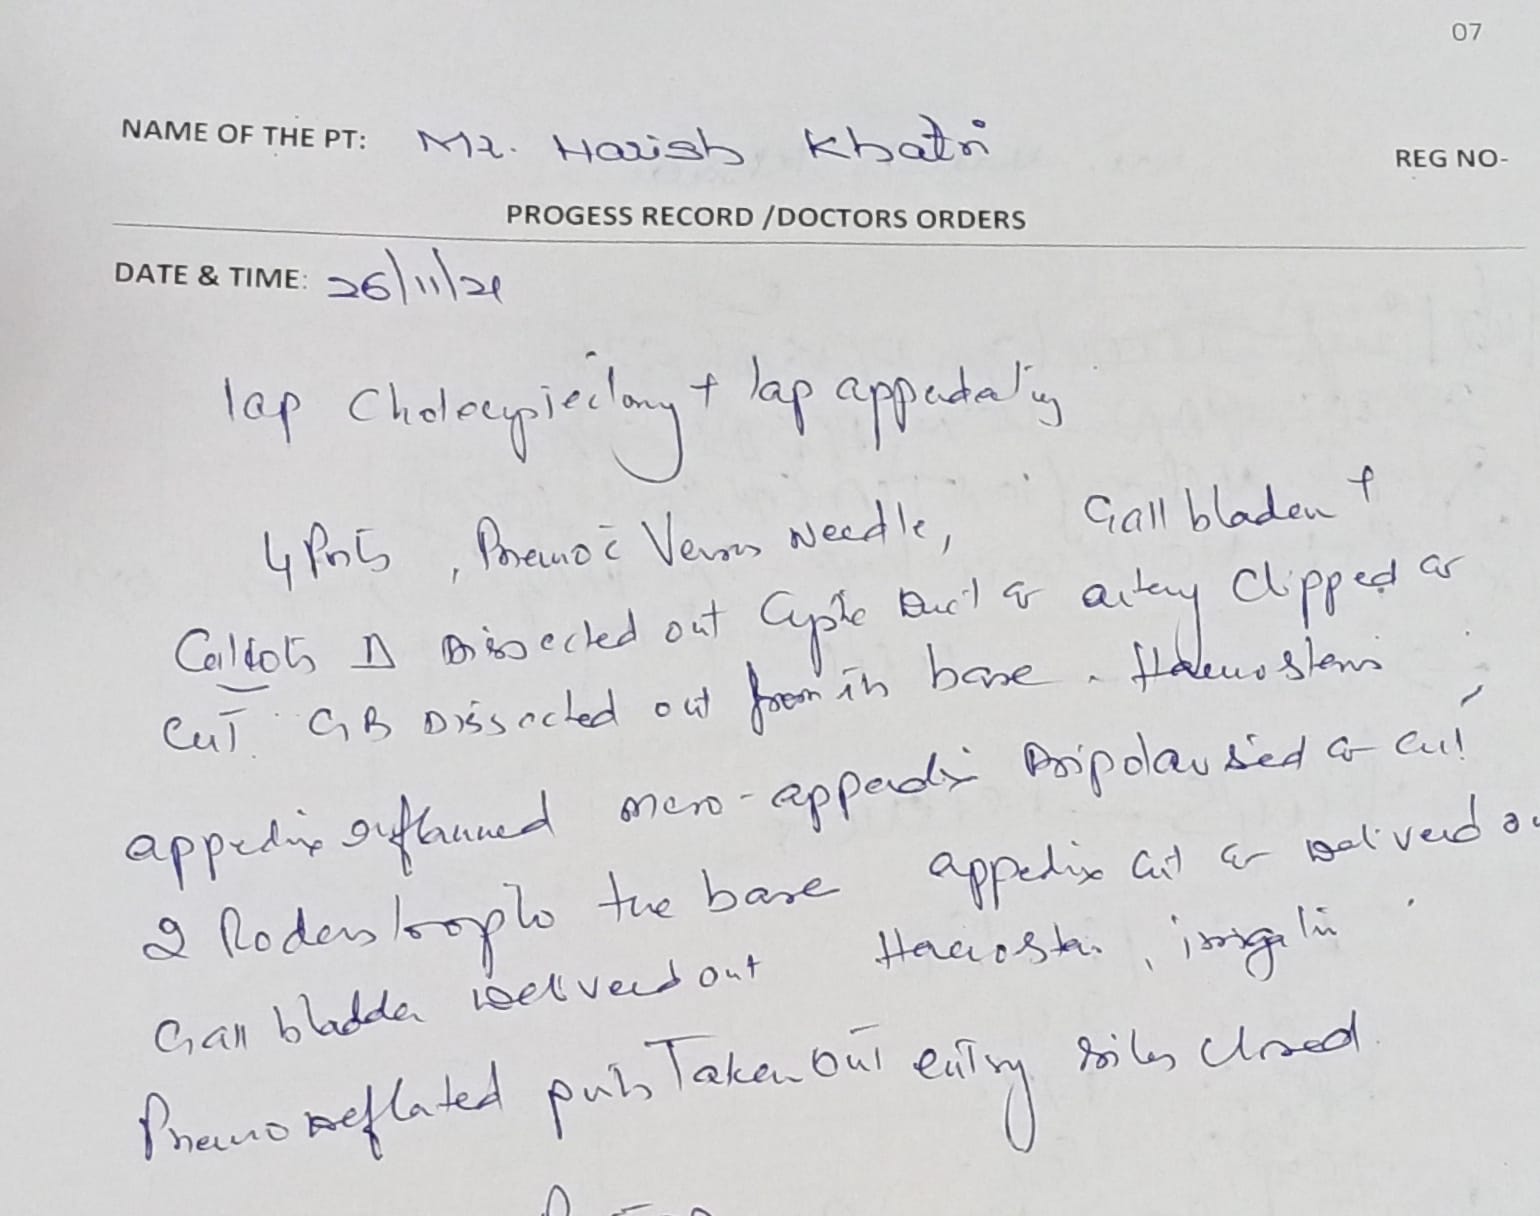 07
NAME OF THE PT: Mr. Harish Khatri
REG NO-
PROGESS RECORD /DOCTORS ORDERS
DATE & TIME: 26/11/21
lap Cholecystectomy + lap
4 Ports , Pneumo c̄ Needle, Gall bladder +
Δ Dissected out Cystic Duct & artery Clipped &
Cut. GB Dissected out from its base. Haemostasis
appendix inflammed meso-appendix Bipolarised & Cut
2 Roders loop to the base appedix Cut & Deliverd
Gall bladder Deliverd out Haemostasis, irrigation
Pneumo Deflated ports Taken Out entry sites closed.